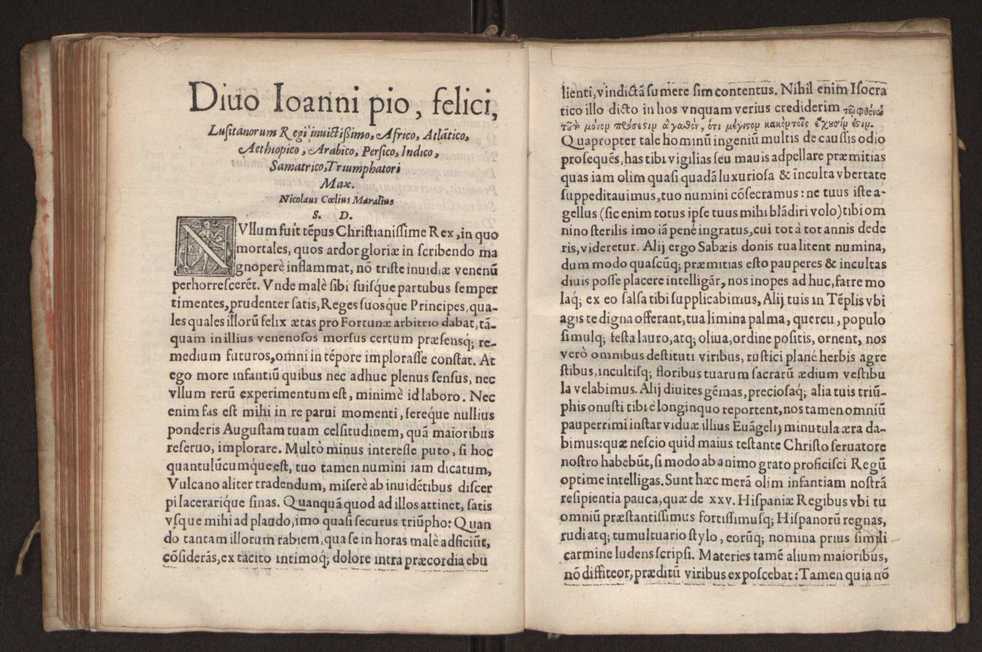 Diuo Ioanni pio, felici,
Lusitanorum Regi inuictißimo, Africo, Atlãtico,
Aethiopico, Arabico, Persico, Indico,
Samatrico, Triumphatori
Max.
Nicolaus Cœlius Maralius
S. D.
NVllum fuit tẽpus Christianissime Rex, in quo
mortales, quos ardor gloriæ in scribendo ma
gnoperè inflammat, nõ triste inuidiæ venenũ
perhorrescerẽt. Vnde malè sibi suisque partubus semper
timentes, prudenter satis, Reges suosque Principes, qua-
les quales illorũ felix ætas pro Fortunæ arbitrio dabat, tã-
quam in illius venenosos morsus certum præsensq; re-
medium futuros, omni in tẽpore implorasse constat. At
ego more infantiũ quibus nec adhuc plenus sensus, nec
vllum rerũ experimentum est, minimè id laboro. Nec
enim fas est mihi in re parui momenti, fereque nullius
ponderis Augustam tuam celsitudinem, quã maioribus
reseruo, implorare. Multò minus interesse puto, si hoc
quantulũcumque est, tuo tamen numini iam dicatum,
Vulcano aliter tradendum, miserè ab inuidẽtibus discer
pi lacerarique sinas. Quanquã quod ad illos attinet, satis
vsque mihi ad plaudo, imo quasi securus triũpho: Quan
do tantam illorum rabiem, qua se in horas malè adficiũt,
cõsiderãs, ex tacito intimoq; dolore intra præcordia ebu
lienti, vindictã sumere sim contentus. Nihil enim Isocra
tico illo dicto in hos vnquam verius crediderim
Quapropter tale hominũ ingeniũ multis de caussis odio
prosequẽs, has tibi vigilias seu mauis adpellare præmitias
quas iam olim quasi quadã luxuriosa & inculta vbertate
suppeditauimus, tuo numini cõsecramus: ne tuus iste a-
gellus (sic enim totus ipse tuus mihi blãdiri volo) tibi om
nino sterilis imo iã penè ingratus, cui tot à tot annis dede
ris, videretur. Alij ergo Sabæis donis tua litent numina,
dum modo quascũq; præmitias esto pauperes & incultas
diuis posse placere intelligãr, nos inopes ad huc, farre mo
laq; ex eo salsa tibi supplicabimus, Alij tuis in Tẽplis vbi
agis te digna offerant, tua limina palma, quercu, populo
simulq; festa lauro, atq; oliua, ordine positis, ornent, nos
verò omnibus destituti viribus, rustici planè herbis agre
stibus, incultisq; floribus tuarum sacrarũ ædium vestibu
la velabimus. Alij diuites gẽmas, preciosaq; alia tuis triũ-
phis onusti tibi è longinquo reportent, nos tamen omniũ
pauperrimi instar viduæ illius Euãgelij minutula æra da-
bimus: quæ nescio quid maius testante Christo seruatore
nostro habebũt, si modo ab animo grato proficisci Regũ
optime intelligas. Sunt hæc merã olim infantiam nostrã
resipientia pauca, quæ de xxv. Hispaniæ Regibus vbi tu
omniũ præstantissimus fortissimusq; Hispanorũ regnas,
rudi atq; tumultuario stylo, eorũq; nomina prius simpli
carmine ludens scripsi. Materies tamẽ alium maioribus,
nõ diffiteor, præditũ viribus exposcebat: Tamen quia nõ